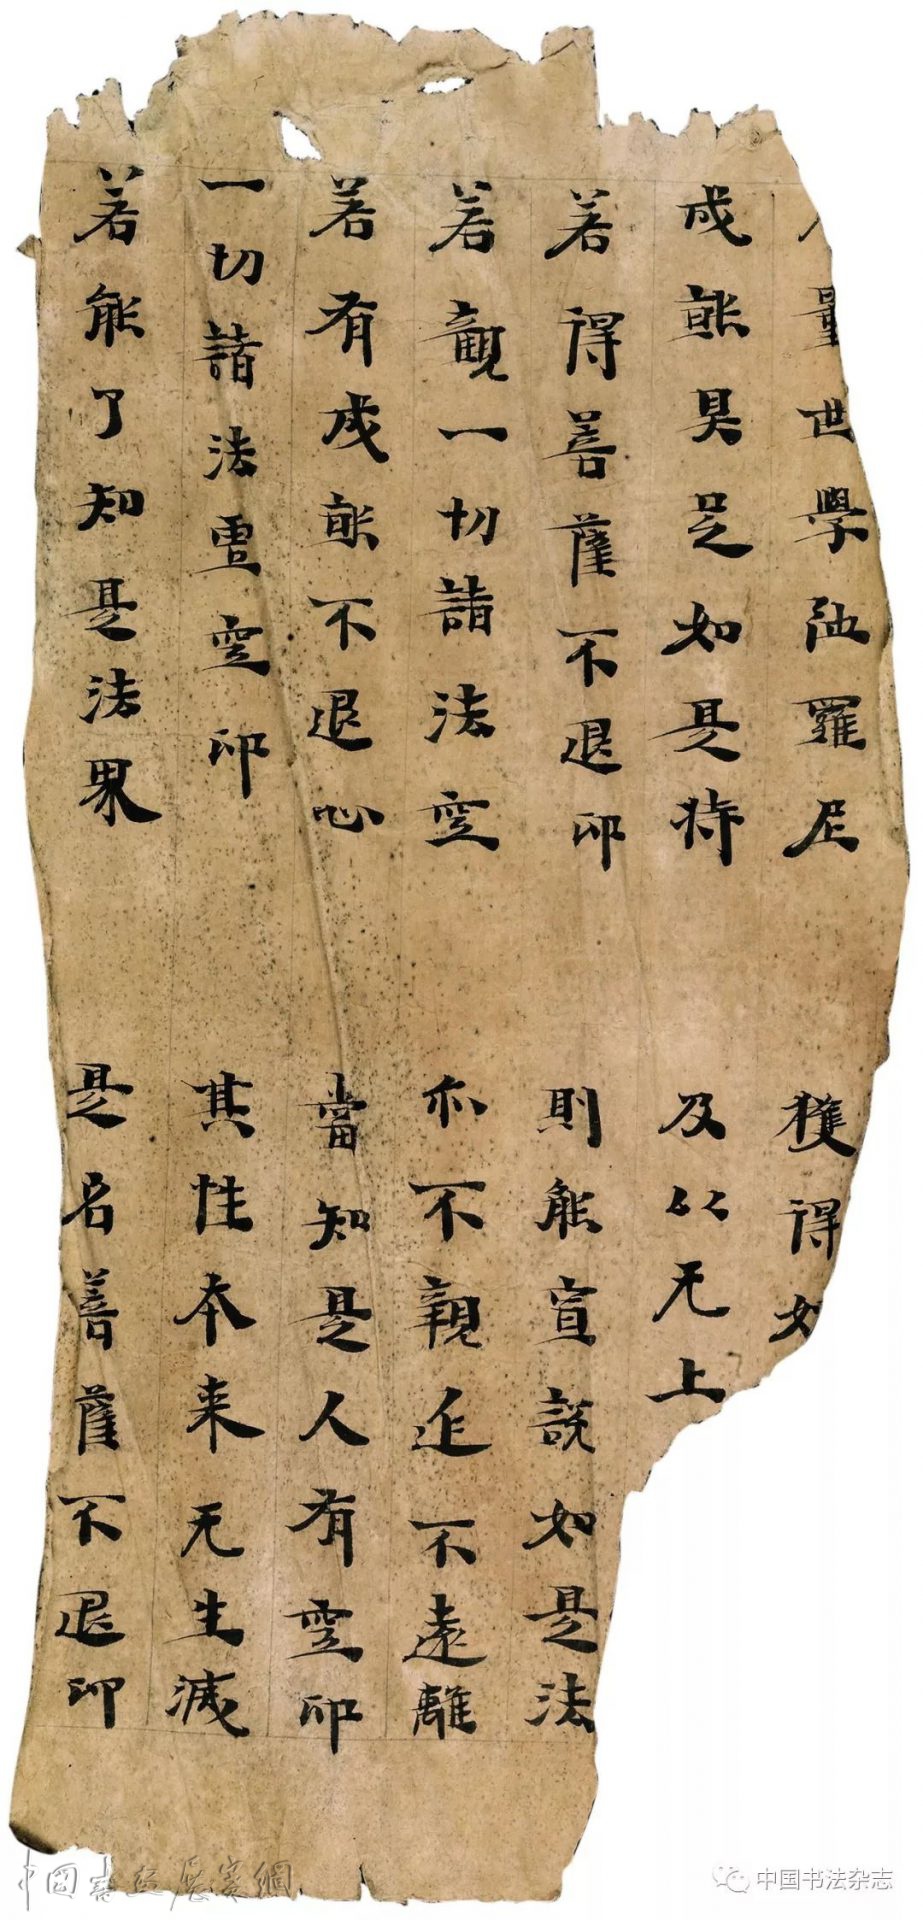 量世學陁羅尼 獲得如
成就具足如是持 及以无上
若得菩薩不退印 則能宣說如是法
若觀一切諸法空 亦不親近不遠離
若有成就不退心 當知是人有空印
一切諸法虛空印 其性本来无生滅
若能了知是法果 是名菩薩不退印
中國書画展賽網
中国书法杂志